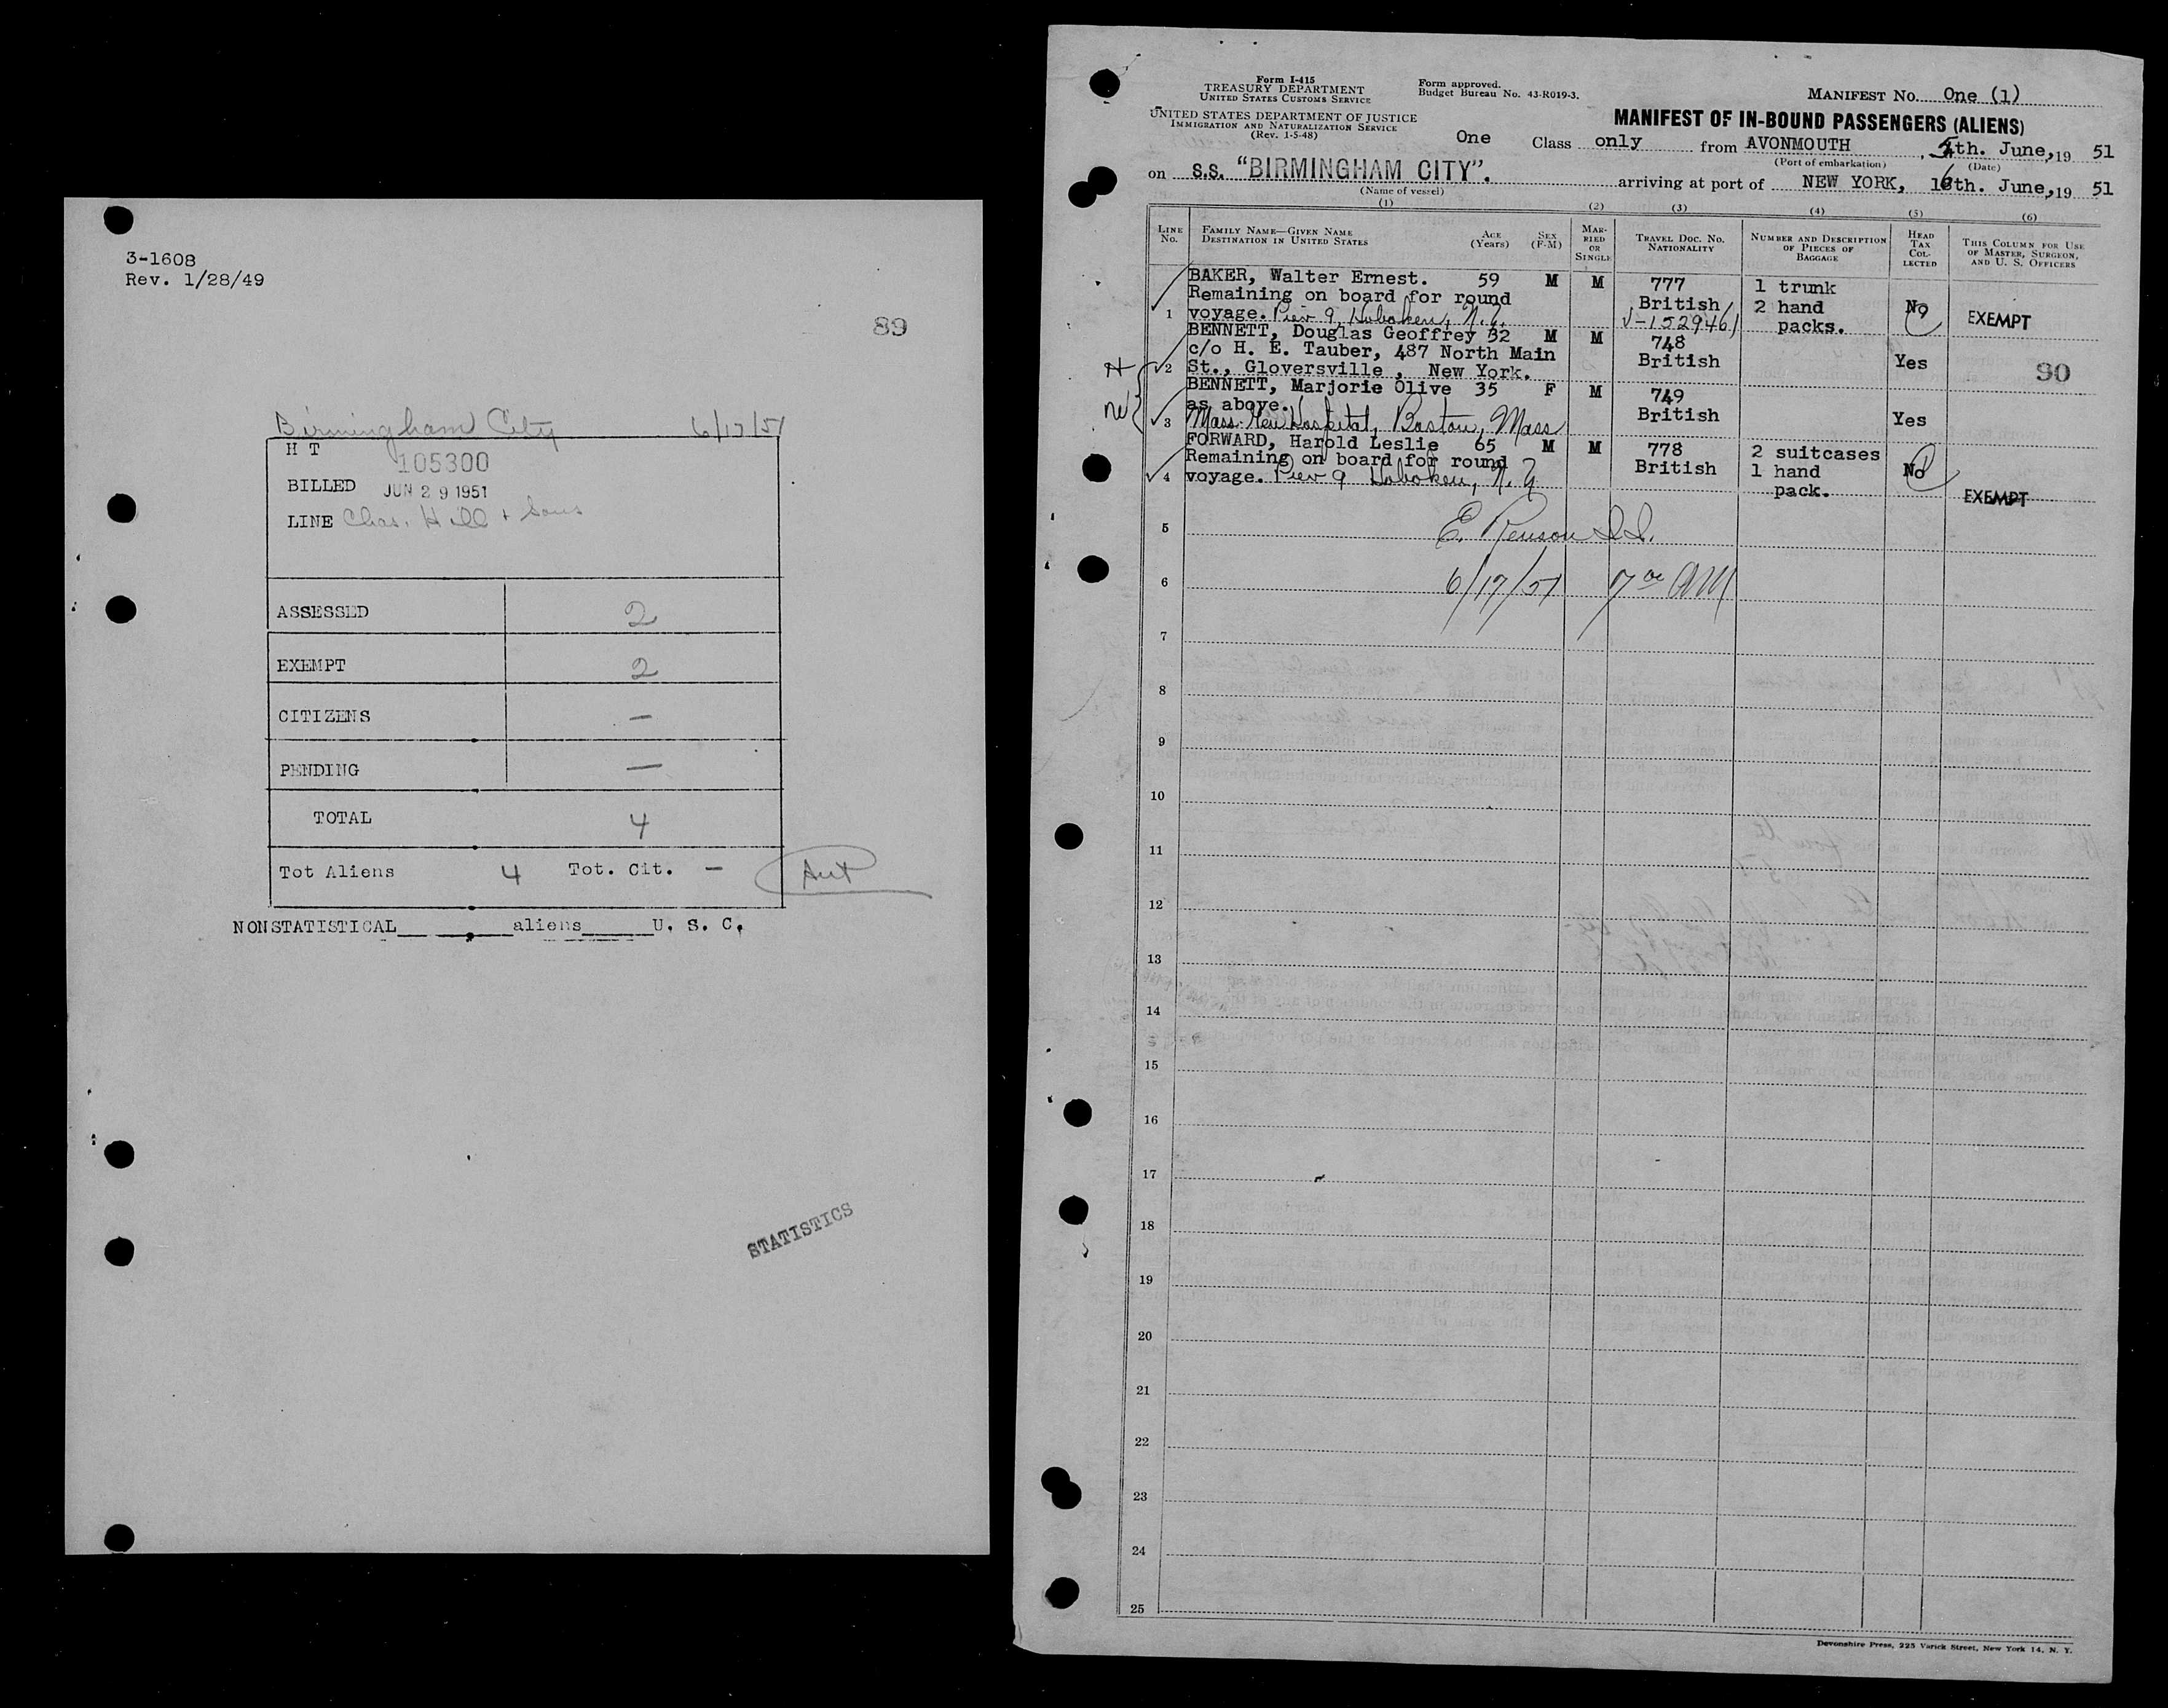 3-1608
Rev. 1/28/49
89
Birmingham City 6/17/51
H T 105300
BILLED JUN 29 1951
LINE Chas. Hill & Sons
ASSESSED 2
EXEMPT 2
CITIZENS —
PENDING —
TOTAL 4
Tot Aliens 4 Tot. Cit. —
NONSTATISTICAL aliens U. S. C.
STATISTICS
Form I-415
TREASURY DEPARTMENT
UNITED STATES CUSTOMS SERVICE
UNITED STATES DEPARTMENT OF JUSTICE
IMMIGRATION AND NATURALIZATION SERVICE
(Rev. 1-5-48)
Form approved.
Budget Bureau No. 43-R019-3.
MANIFEST No. One (1)
MANIFEST OF IN-BOUND PASSENGERS (ALIENS)
One Class only from AVONMOUTH, 5th. June, 19 51
(Port of embarkation) (Date)
on S.S. "BIRMINGHAM CITY". arriving at port of NEW YORK, 16th. June, 19 51
(Name of vessel)
(1) (2) (3) (4) (5) (6)
LINE No.
FAMILY NAME—GIVEN NAME
DESTINATION IN UNITED STATES
AGE (Years)
SEX (F-M)
MARRIED OR SINGLE
TRAVEL DOC. NO. NATIONALITY
NUMBER AND DESCRIPTION OF PIECES OF BAGGAGE
HEAD TAX COLLECTED
THIS COLUMN FOR USE OF MASTER, SURGEON, AND U. S. OFFICERS
BAKER, Walter Ernest. 59 M M 777 1 trunk
Remaining on board for round British 2 hand No EXEMPT
1 voyage. Pier 9, Hoboken, N.J. V-1529461 packs.
BENNETT, Douglas Geoffrey 32 M M 748
c/o H. E. Tauber, 487 North Main British Yes 90
2 St., Gloversville, New York.
BENNETT, Marjorie Olive 35 F M 749
as above. British
3 Mass. Gen Hospital, Boston, Mass Yes
FORWARD, Harold Leslie 65 M M 778 2 suitcases
Remaining on board for round British 1 hand No
4 voyage. Pier 9 Hoboken, N.J. pack. EXEMPT
5 E. Renson I.I.
6 6/17/51 7 00 AM
7
8
9
10
11
12
13
14
15
16
17
18
19
20
21
22
23
24
25
Devonshire Press, 225 Varick Street, New York 14, N. Y.